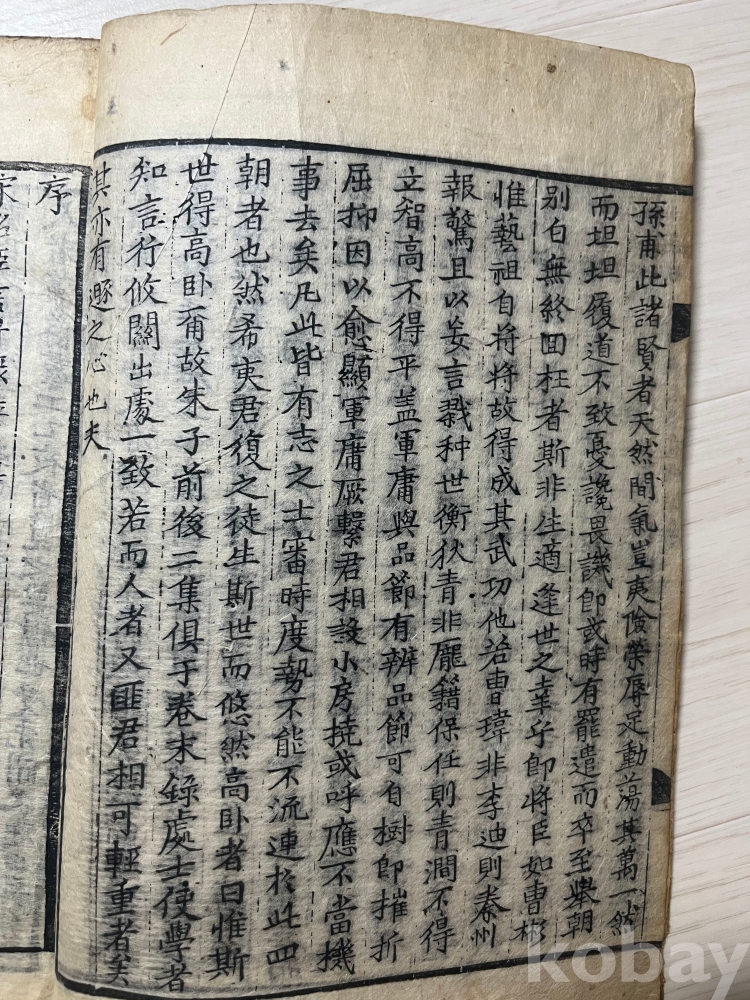 孫甫此諸賢者天然間氣豈夷險榮辱足動蕩其萬一然
而坦坦履道不致憂讒畏譏卽或時有罷遣而卒至舉朝
别白無終回枉者斯非生適逢世之幸乎卽將臣如曹彬
惟藝祖自將將故得成其武功他若曹瑋非李迪則秦州
報驚且以妄言戮种世衡狄青非龐籍保任則青澗不得
立智高不得平盖軍庸與品節有辨品節可自樹卽摧折
屈抑因以愈顯軍庸厥繫君相設小房撓或呼應不當機
事去矣凡此皆有志之士審時度勢不能不流連於此四
朝者也然希夷君復之徒生斯世而悠然高卧者曰惟斯
世得高卧爾故朱子前後二集俱于卷末錄處士使學者
知言行攸關出處一致若而人者又匪君相可輕重者矣
其亦有遯之心也夫
序
kobay